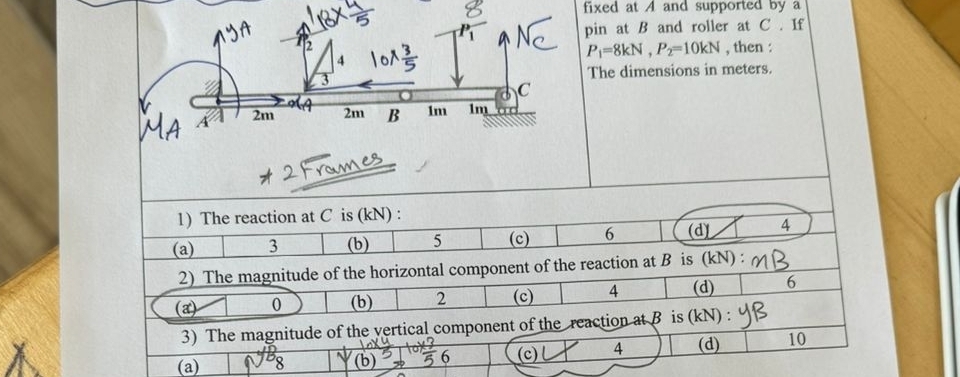 fixed at A and supported by a
pin at B and roller at C . If
P₁=8kN , P₂=10kN , then :
The dimensions in meters.
yA
10×3/5
8
P₁
NC
4
3
MA
A
2m
xA
2m
B
1m
1m
C
* 2 Frames
1) The reaction at C is (kN) :
(a) 3 (b) 5 (c) 6 (d) 4
2) The magnitude of the horizontal component of the reaction at B is (kN) : xB
(a) 0 (b) 2 (c) 4 (d) 6
3) The magnitude of the vertical component of the reaction at B is (kN) : yB
(a) 8 (b) 6 (c) 4 (d) 10